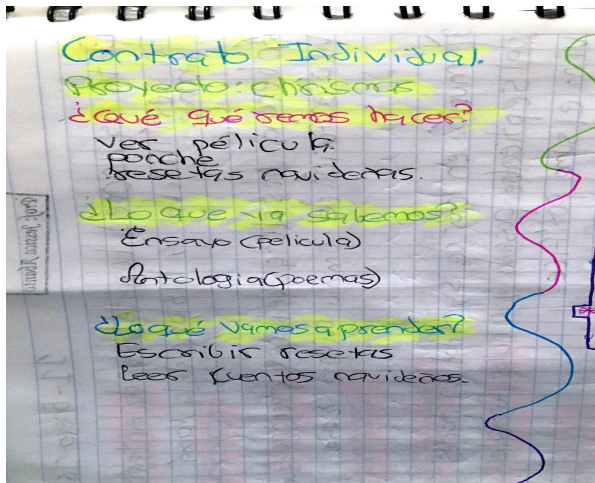 Contrato Individual.
Proyecto: chrismas
¿Qué quéremos hacer?
ver película.
ponche
resetas navideñas.
¿Lo que ya sabemos?
Ensayo (pelicula)
Antologia (poemas)
¿Lo qué vamos aprender?
Escribir resetas
Leer Kuentos navideños.